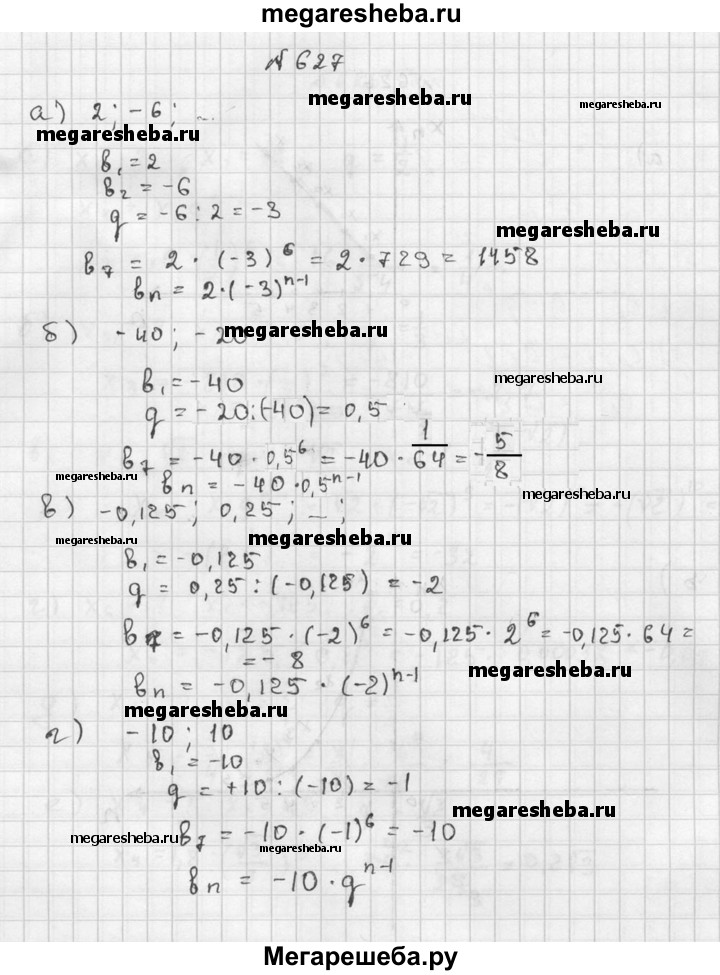 megaresheba.ru
№ 627
megaresheba.ru
а) 2; -6; ...
megaresheba.ru
megaresheba.ru
b₁ = 2
b₂ = -6
q = -6 : 2 = -3
megaresheba.ru
b₇ = 2 · (-3)⁶ = 2 · 729 = 1458
bₙ = 2·(-3)ⁿ⁻¹
б) -40; -20 megaresheba.ru
b₁ = -40 megaresheba.ru
q = -20:(-40) = 0,5
b₇ = -40 · 0,5⁶ = -40 · 1/64 = -5/8
megaresheba.ru bₙ = -40 · 0,5ⁿ⁻¹
megaresheba.ru
в) -0,125; 0,25; ...;
megaresheba.ru megaresheba.ru
b₁ = -0,125
q = 0,25 : (-0,125) = -2
b₇ = -0,125 · (-2)⁶ = -0,125 · 2⁶ = -0,125 · 64 =
= - 8
megaresheba.ru
bₙ = -0,125 · (-2)ⁿ⁻¹
megaresheba.ru
г) -10; 10
b₁ = -10
q = +10 : (-10) = -1
megaresheba.ru
megaresheba.ru b₇ = -10 · (-1)⁶ = -10
megaresheba.ru
bₙ = -10 · qⁿ⁻¹
Мегарешеба.ру